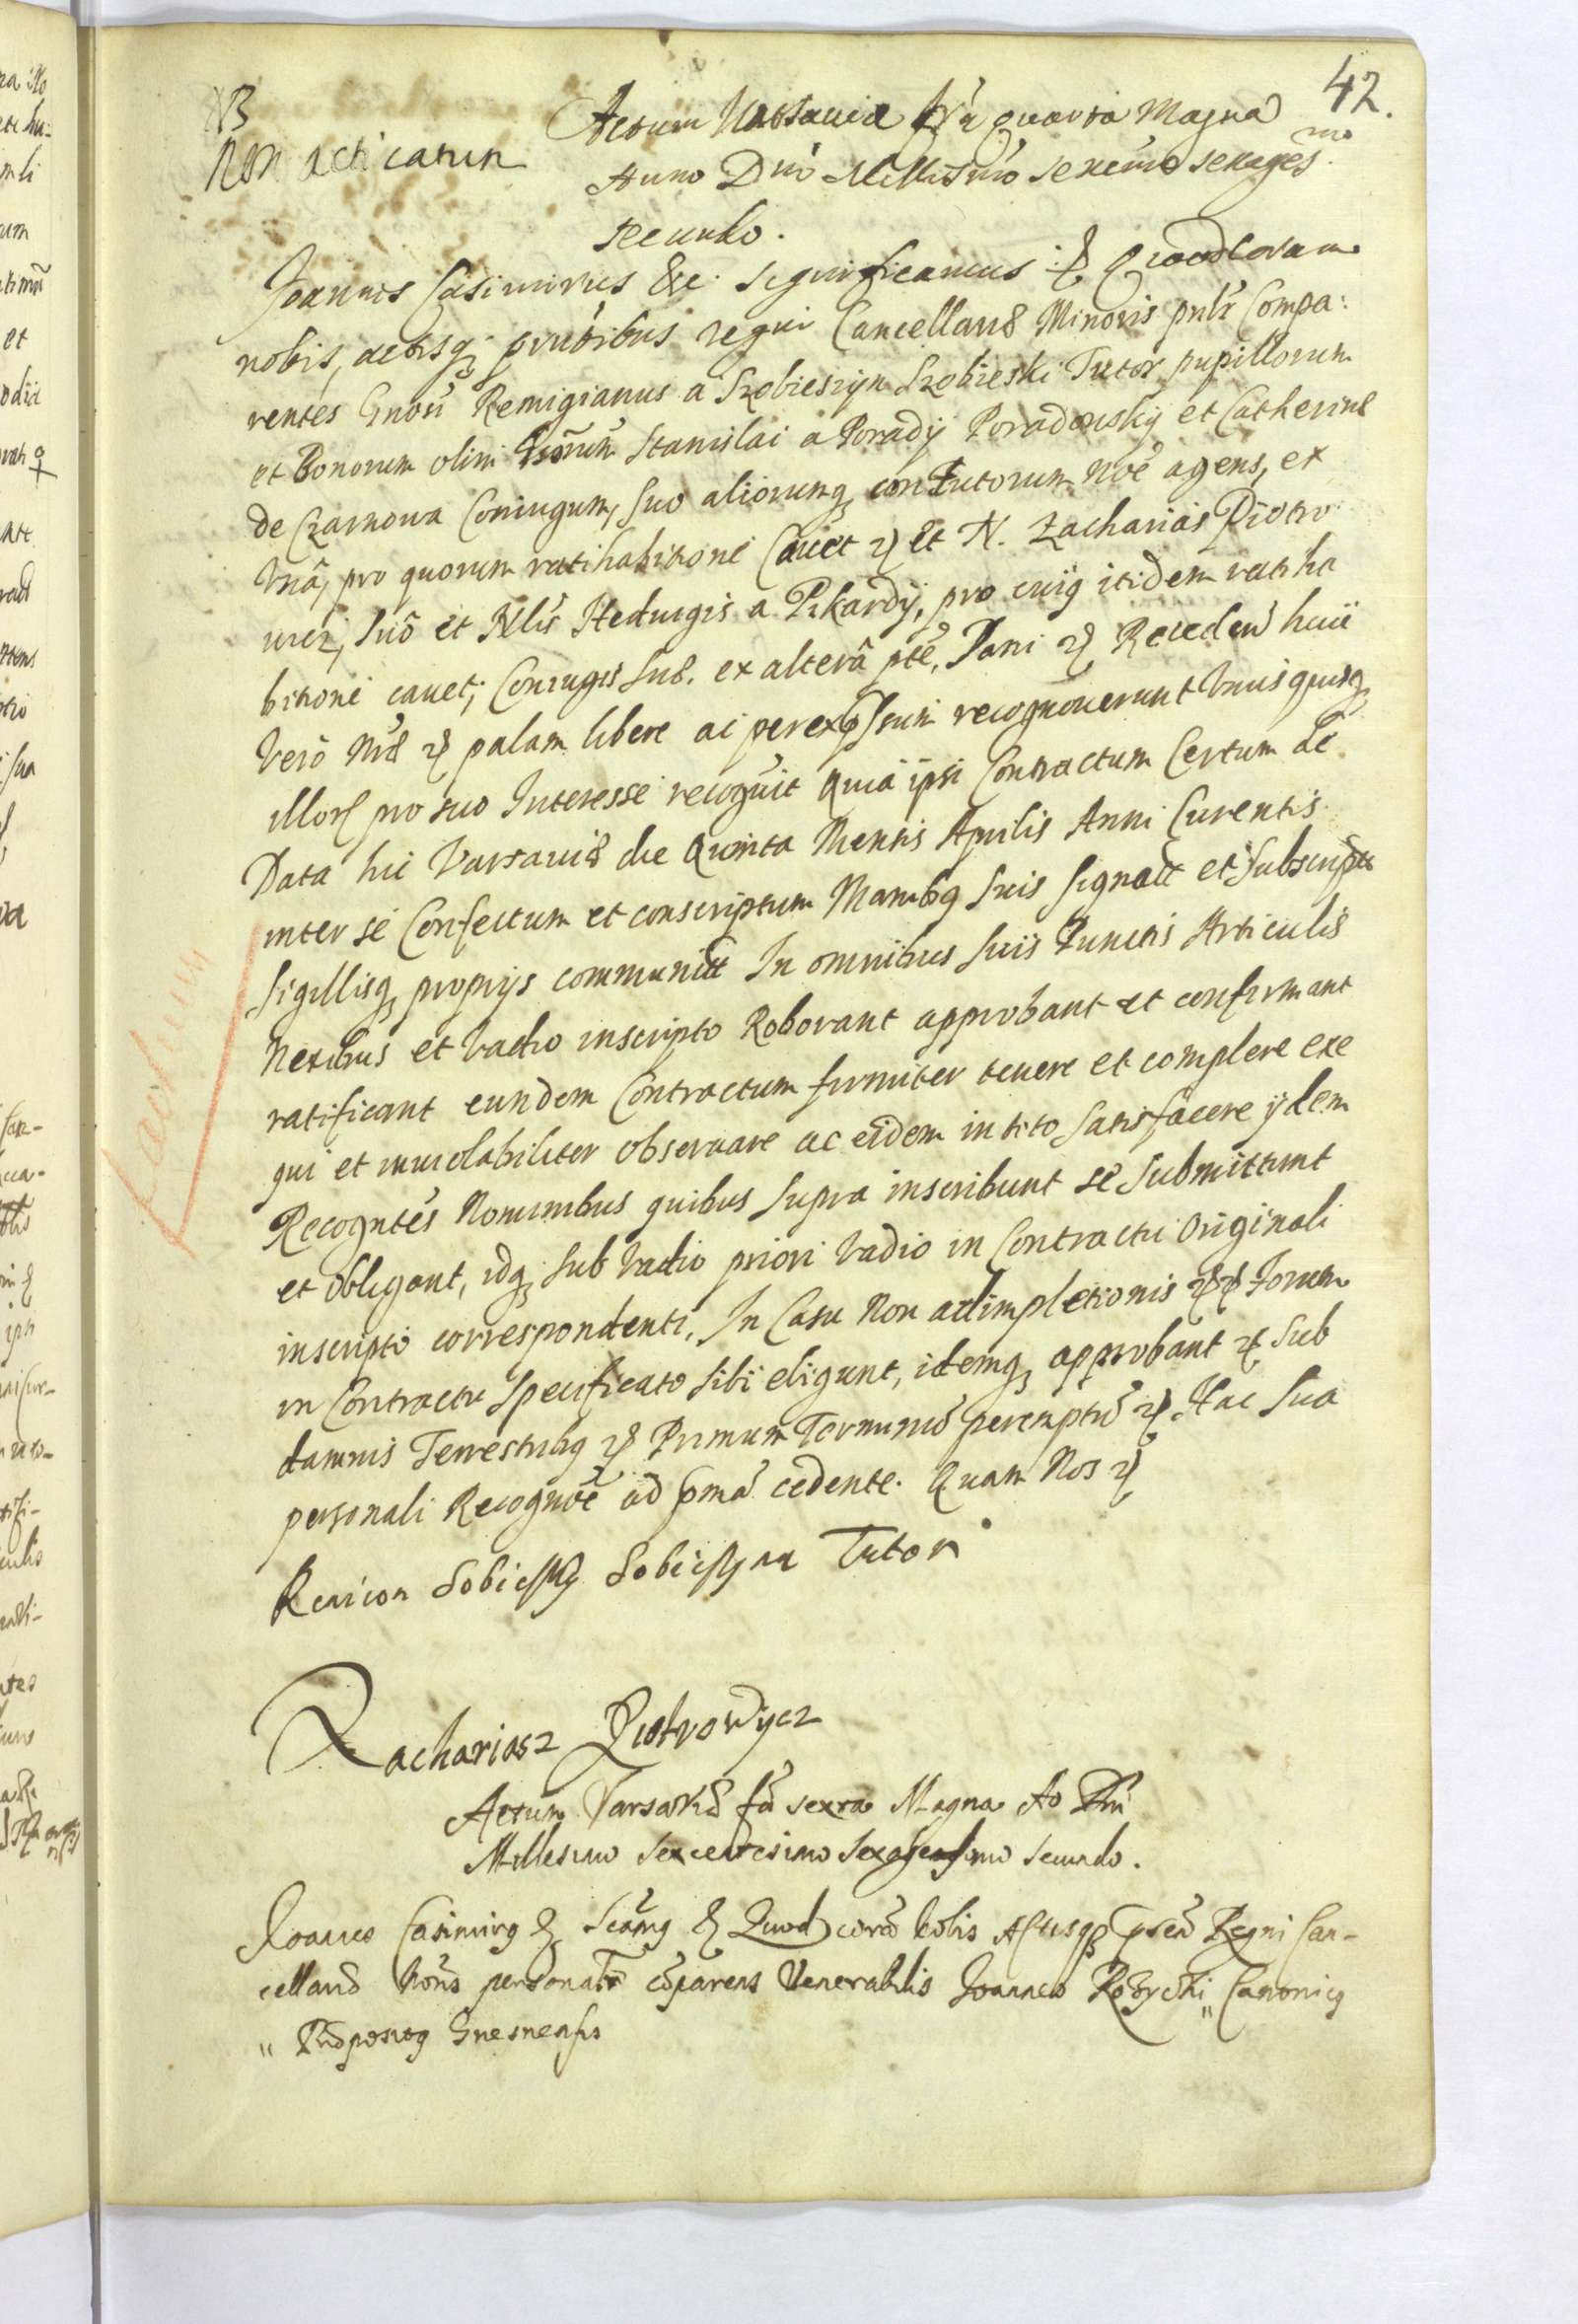 42.
NB
Non acticatum
Actum Varsaviæ fria quarta Magna
Anno Dni Millesimo sexcmo sexages.mo
secundo.
Joannes Casimirus &c. significamus &c Quod Coram
nobis, actisq; pntibus regni Cancellariæ Minoris pnlr Compa:
rentes Gnosi Remigianus a Szobieszyn Szobieski Tutor pupillorum
et Bonorum olim Gsorum Stanislai a Porady Poradowsky et Catherinæ
de Czarnowa Coniugum, suo aliorumq; conTutorum noe agens, ex
Vnâ, pro quorum ratihabitione Cavet &c Et N. Zacharias Piotro
wicz, suô et Nlis Hedwigis a Pikardy, pro cuig itidem ratiha
bitione cavet, Coniugis suæ. ex alterâ pte, Sani &c Receden huii
verò Nræ &c palam libere ac per exPssum recognoverunt Vnusquisq;
illor pro suo Interesse recognuit Quia ipsi Contractum Certum de
Data hic Varsaviæ die Quinta Mensis Aprilis Anni Curentis
inter se Confectum et conscriptum Manibq suis signatt et Subscript
sigillisq; proprys communitt In omnibus suis Punctis Articulis
Nexibus et Vadio inscripto Roborant approbant et confirmant
ratificant eundem Contractum firmiter tenere et complere exe
qui et inviolabiliter observare ac eidem in toto satisfacere ydem
Recogntes Nominibus quibus supra inscribunt se submittunt
et obligant, idq; sub Vadio priori Vadio in Contractu Originali
inscripto correspondenti, In Casu Non adimpletionis &c&c Forum
in Contractu specificato sibi eligunt, idemq; approbant &c sub
damnis Terrestribq &c Primum Terminum peremptũ &c Hac sua
personali Recognoe ad pma cedente. Quam Nos &c
Remion Sobiesky Sobieszyna Tutor
Zachariasz Piotrowycz
Actum Varsaviæ fa sexta Magna Ao Dni
Millesimo sexcentesimo sexagesimo secundo.
Joannes Casimirg &c Scamg &c Quod corã Nobis Actisqз pser Regni Can-
cellariæ Nois personatr cõparens Venerabilis Joannes Canonicg
" Præpositg Gnesnensis